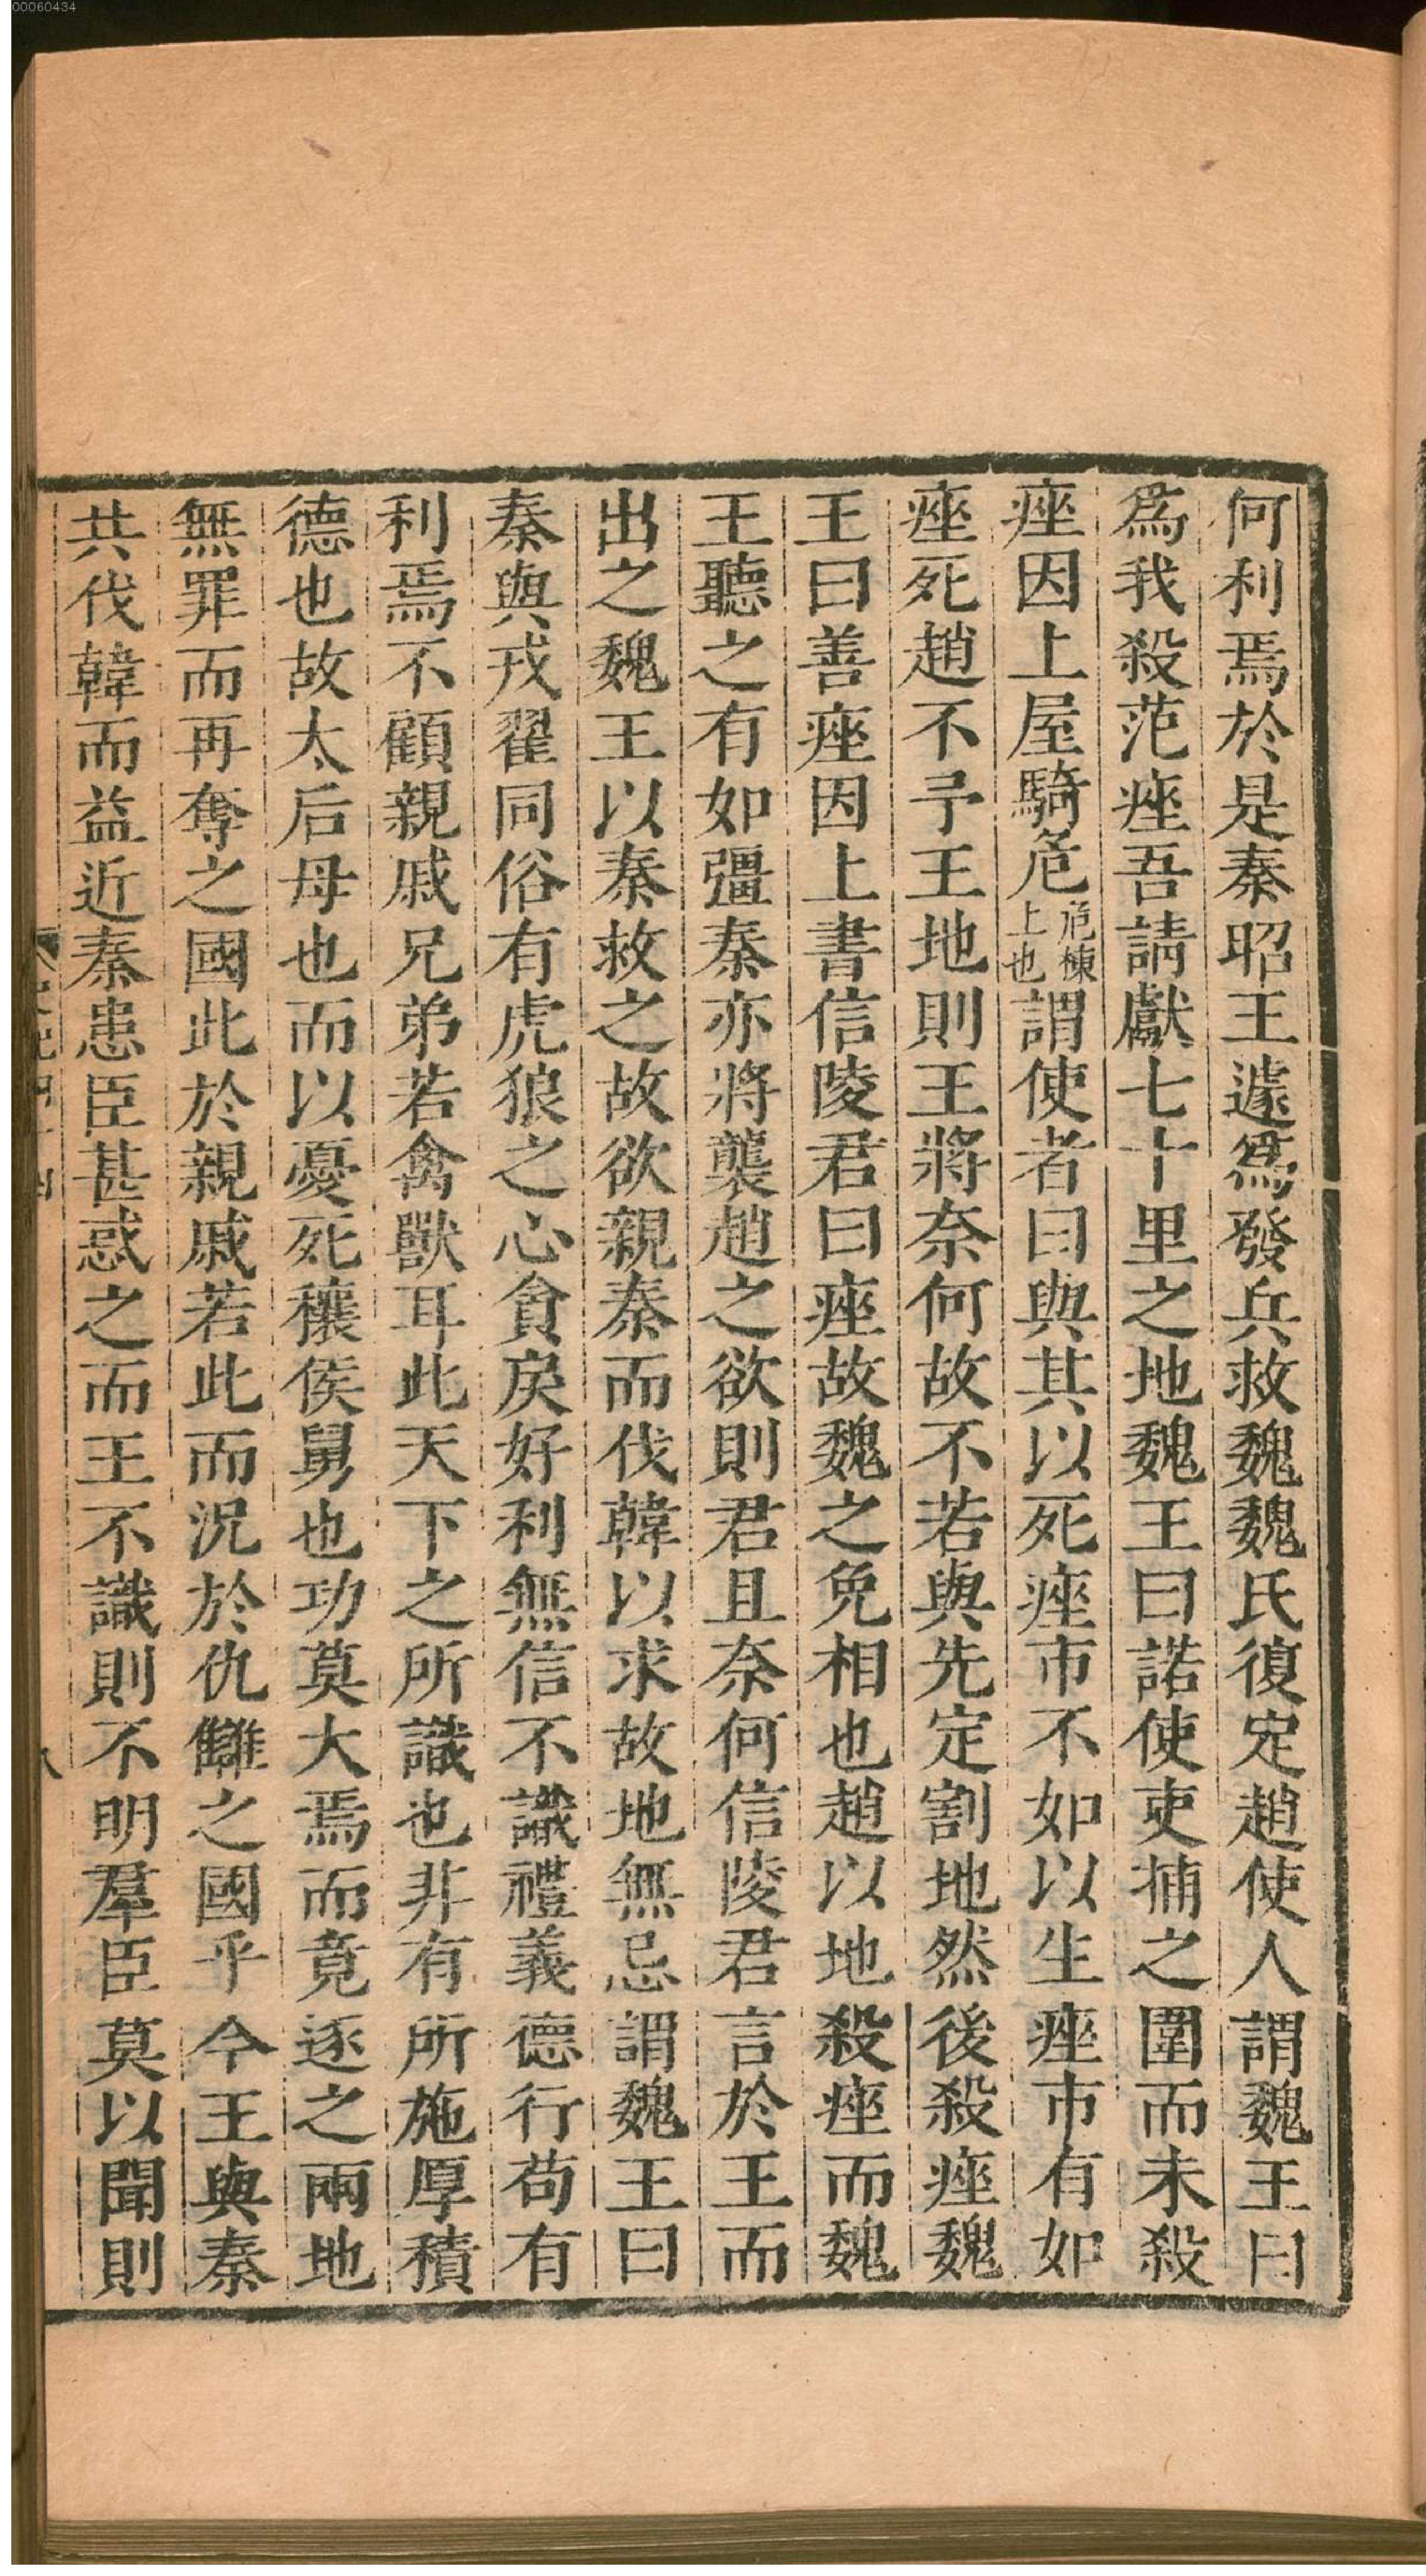 00060434
何利焉於是秦昭王遽爲發兵救魏魏氏復定趙使人謂魏王曰
爲我殺范痤吾請獻七十里之地魏王曰諾使吏捕之圍而未殺
痤因上屋騎危危棟上也謂使者曰與其以死痤市不如以生痤市有如
痤死趙不予王地則王將奈何故不若與先定割地然後殺痤魏
王曰善痤因上書信陵君曰痤故魏之免相也趙以地殺痤而魏
王聽之有如彊秦亦將襲趙之欲則君且奈何信陵君言於王而
出之魏王以秦救之故欲親秦而伐韓以求故地無忌謂魏王曰
秦與戎翟同俗有虎狼之心貪戾好利無信不識禮義德行苟有
利焉不顧親戚兄弟若禽獸耳此天下之所識也非有所施厚積
德也故太后母也而以憂死穰侯舅也功莫大焉而竟逐之兩地
無罪而再奪之國此於親戚若此而況於仇讎之國乎今王與秦
共伐韓而益近秦患臣甚惑之而王不識則不明羣臣莫以聞則